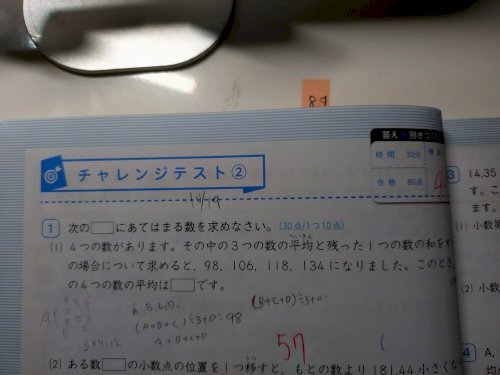 89
答え
時間 30分
合格 80点
チャレンジテスト②
1 次の□にあてはまる数を求めなさい。(30点/1つ10点)
(1) 4つの数があります。その中の3つの数の平均と残った1つの数の和をす
の場合について求めると, 98, 106, 118, 134になりました。このとき
の4つの数の平均は□です。
(A+B+C)÷3+D=98
A+B+C+D
(B+C+D)÷3+A=
57
(2) ある数□の小数点の位置を1つ移すと, もとの数より181.44小さくな
3 14.35
す。こ
ます。
(1) 小数第
(2) 小数
4 A,